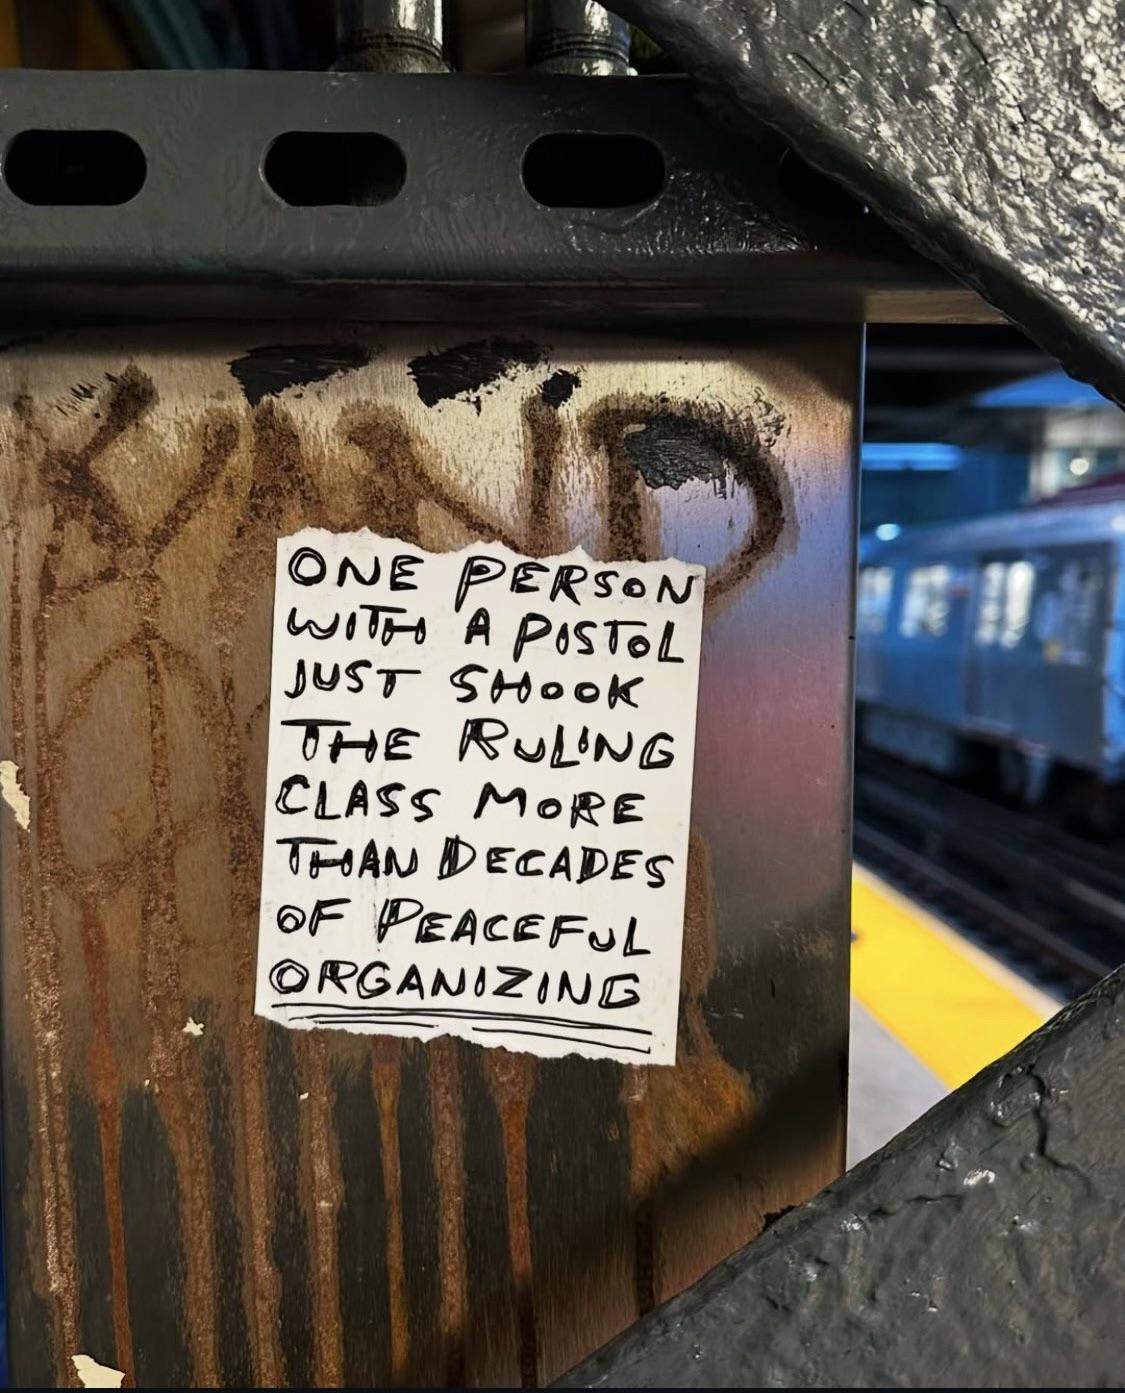 KIND
ONE PERSON
WITH A PISTOL
JUST SHOOK
THE RULING
CLASS MORE
THAN DECADES
OF PEACEFUL
ORGANIZING